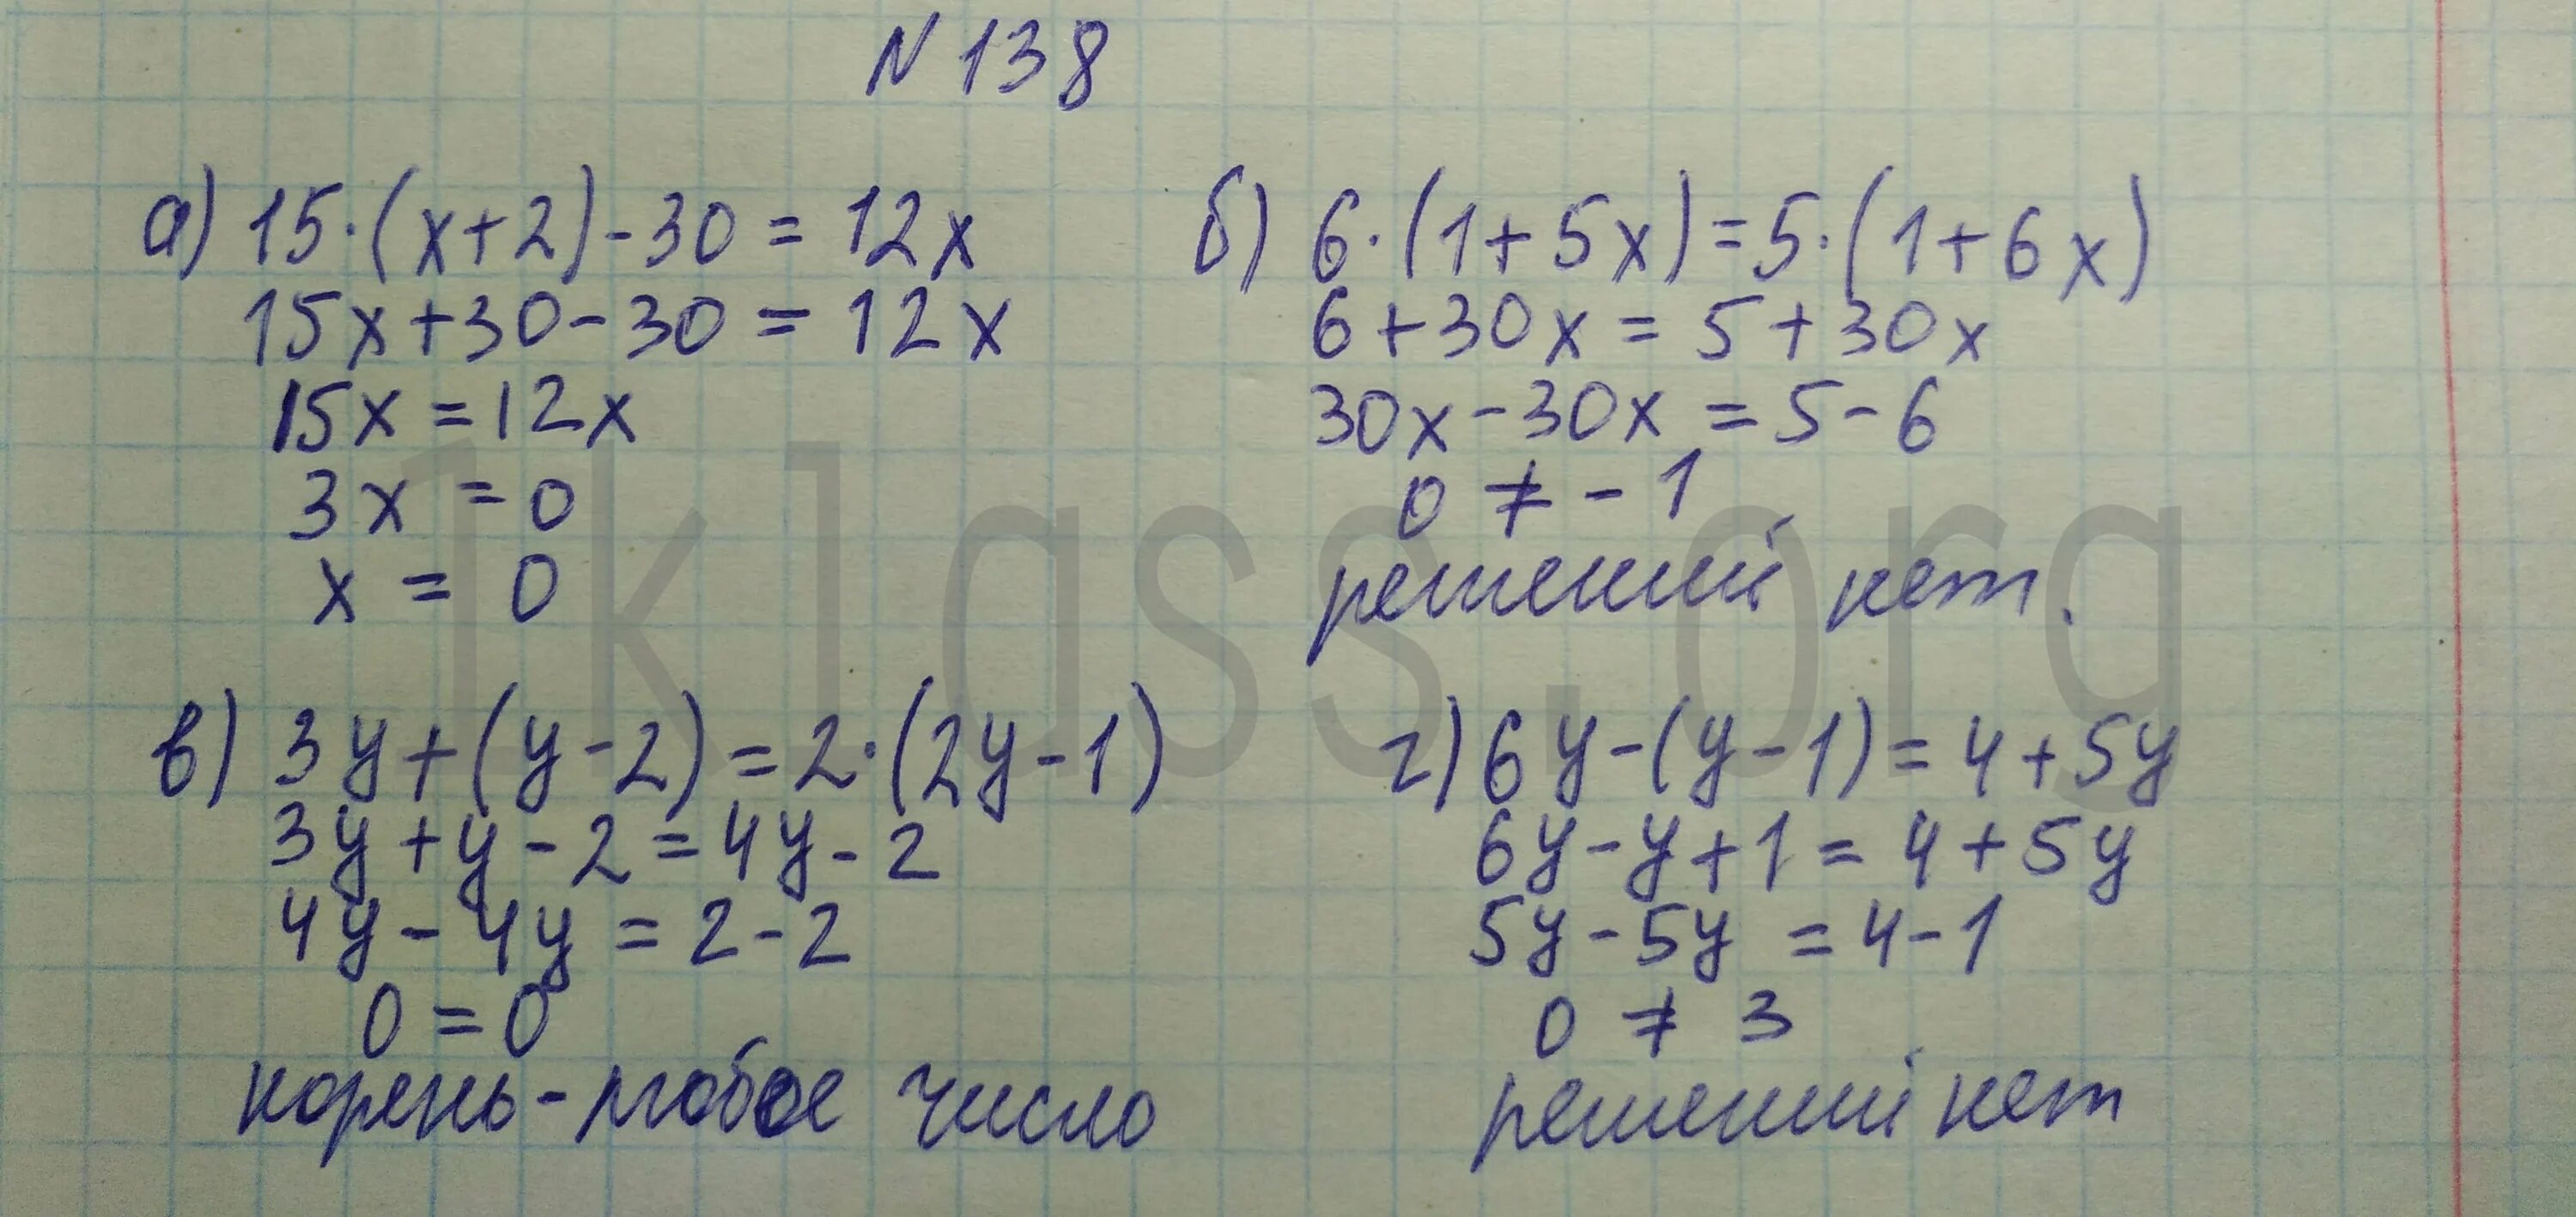 N 138
а) 15·(x+2)-30 = 12x
15x+30-30 = 12x
15x = 12x
3x = 0
x = 0
б) 6·(1+5x)=5·(1+6x)
6+30x = 5+30x
30x-30x = 5-6
0 ≠ -1
решений нет.
в) 3y+(y-2)=2·(2y-1)
3y+y-2=4y-2
4y-4y = 2-2
0 = 0
корень-любое число
г) 6y-(y-1)=4+5y
6y-y+1=4+5y
5y-5y = 4-1
0 ≠ 3
решений нет
1klass.org